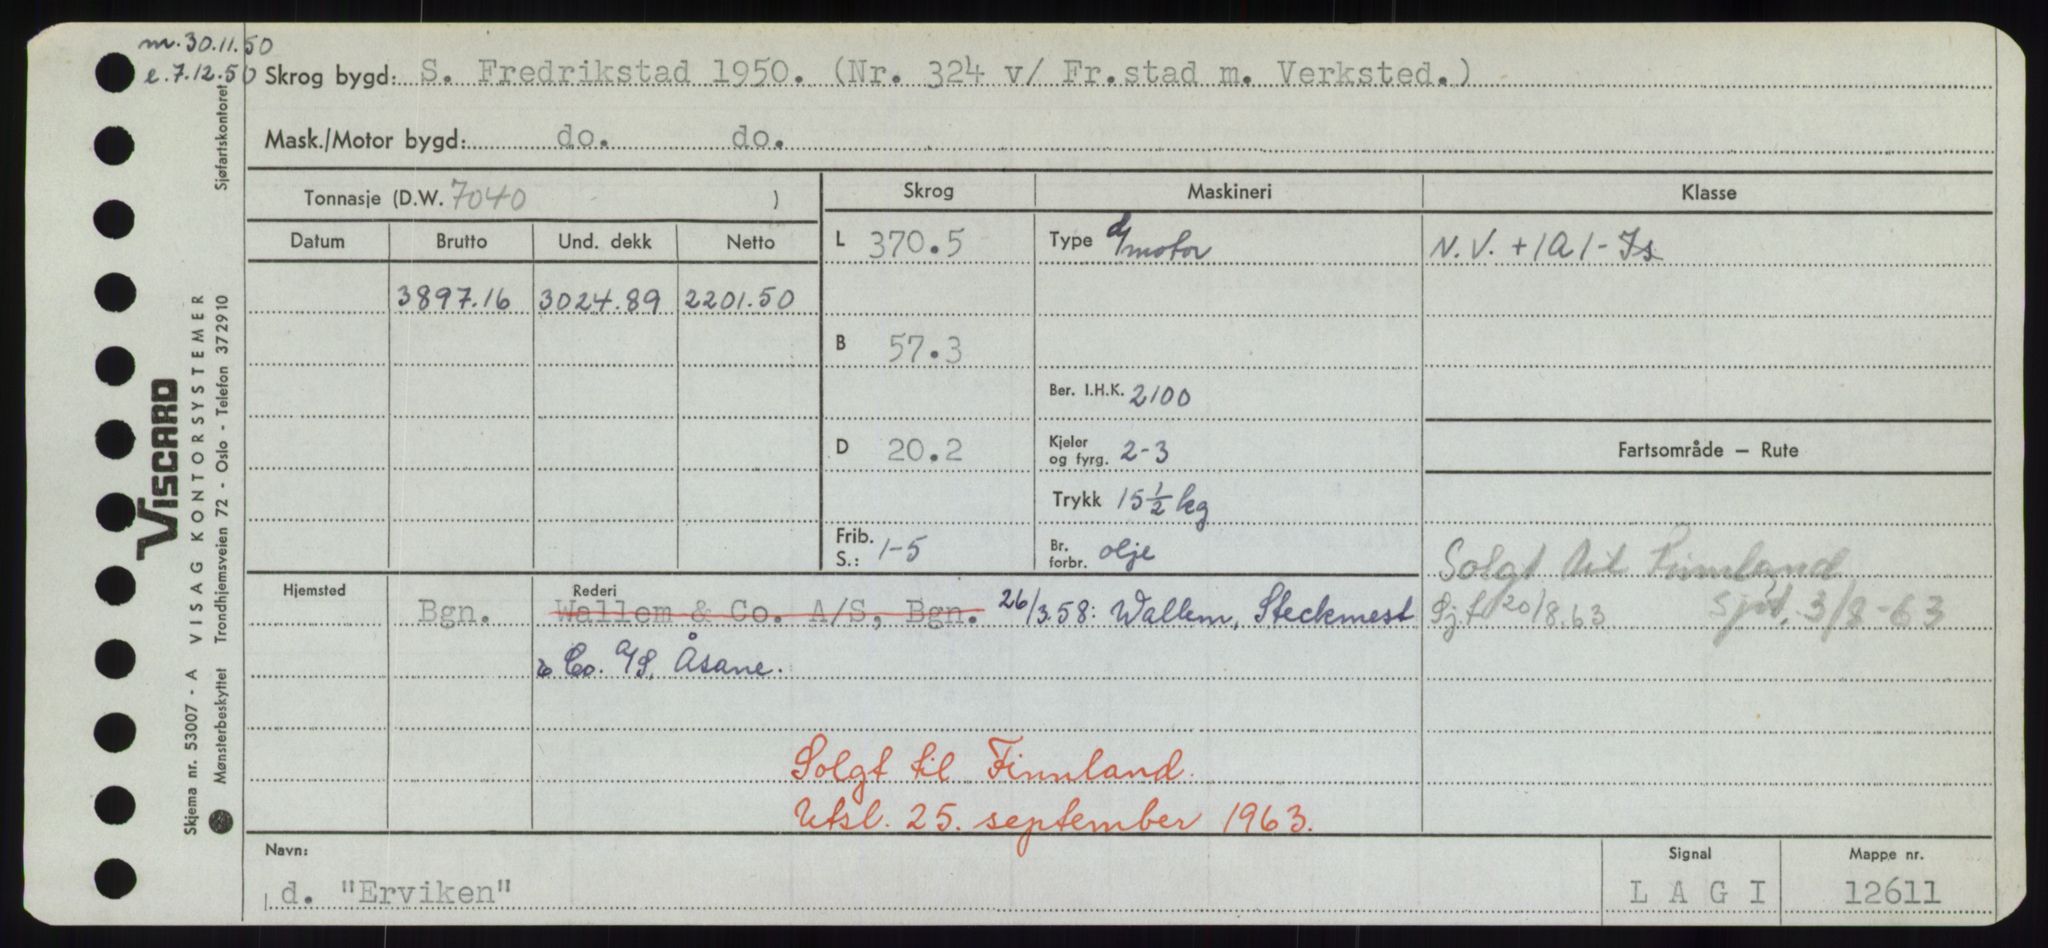 m. 30.11.50
e. 7.12.50
Skrog bygd: S. Fredrikstad 1950. (Nr. 324 v/ Fr.stad m. Verksted.)
Mask./Motor bygd: do. do.
Tonnasje (D.W. 7040 )
Skrog Maskineri Klasse
Datum Brutto Und. dekk Netto
L 370.5 Type d/motor N.V. +1A1-Is
3897.16 3024.89 2201.50
B 57.3
Ber. I.H.K. 2100
D 20.2 Kjeler og fyrg. 2-3 Fartsområde — Rute
Trykk 15 1/2 kg
Frib. S.: 1-5 Br. forbr. olje Solgt til Finnland
Hjemsted Rederi
Bgn. Wallem & Co. A/S, Bgn. 26/3.58: Wallem, Steckmest Sjf 20/8.63 Sjøf. 3/8-63
& Co. A/S, Åsane.
Solgt til Finnland.
Utsl. 25. september 1963.
Navn: Signal Mappe nr.
d. "Erviken" L A G I 12611
Sjøfartskontoret
VISCARD
VISAG KONTORSYSTEMER
Trondhjemsveien 72 - Oslo - Telefon 372910
Skjema nr. 53007 - A
Mønsterbeskyttet